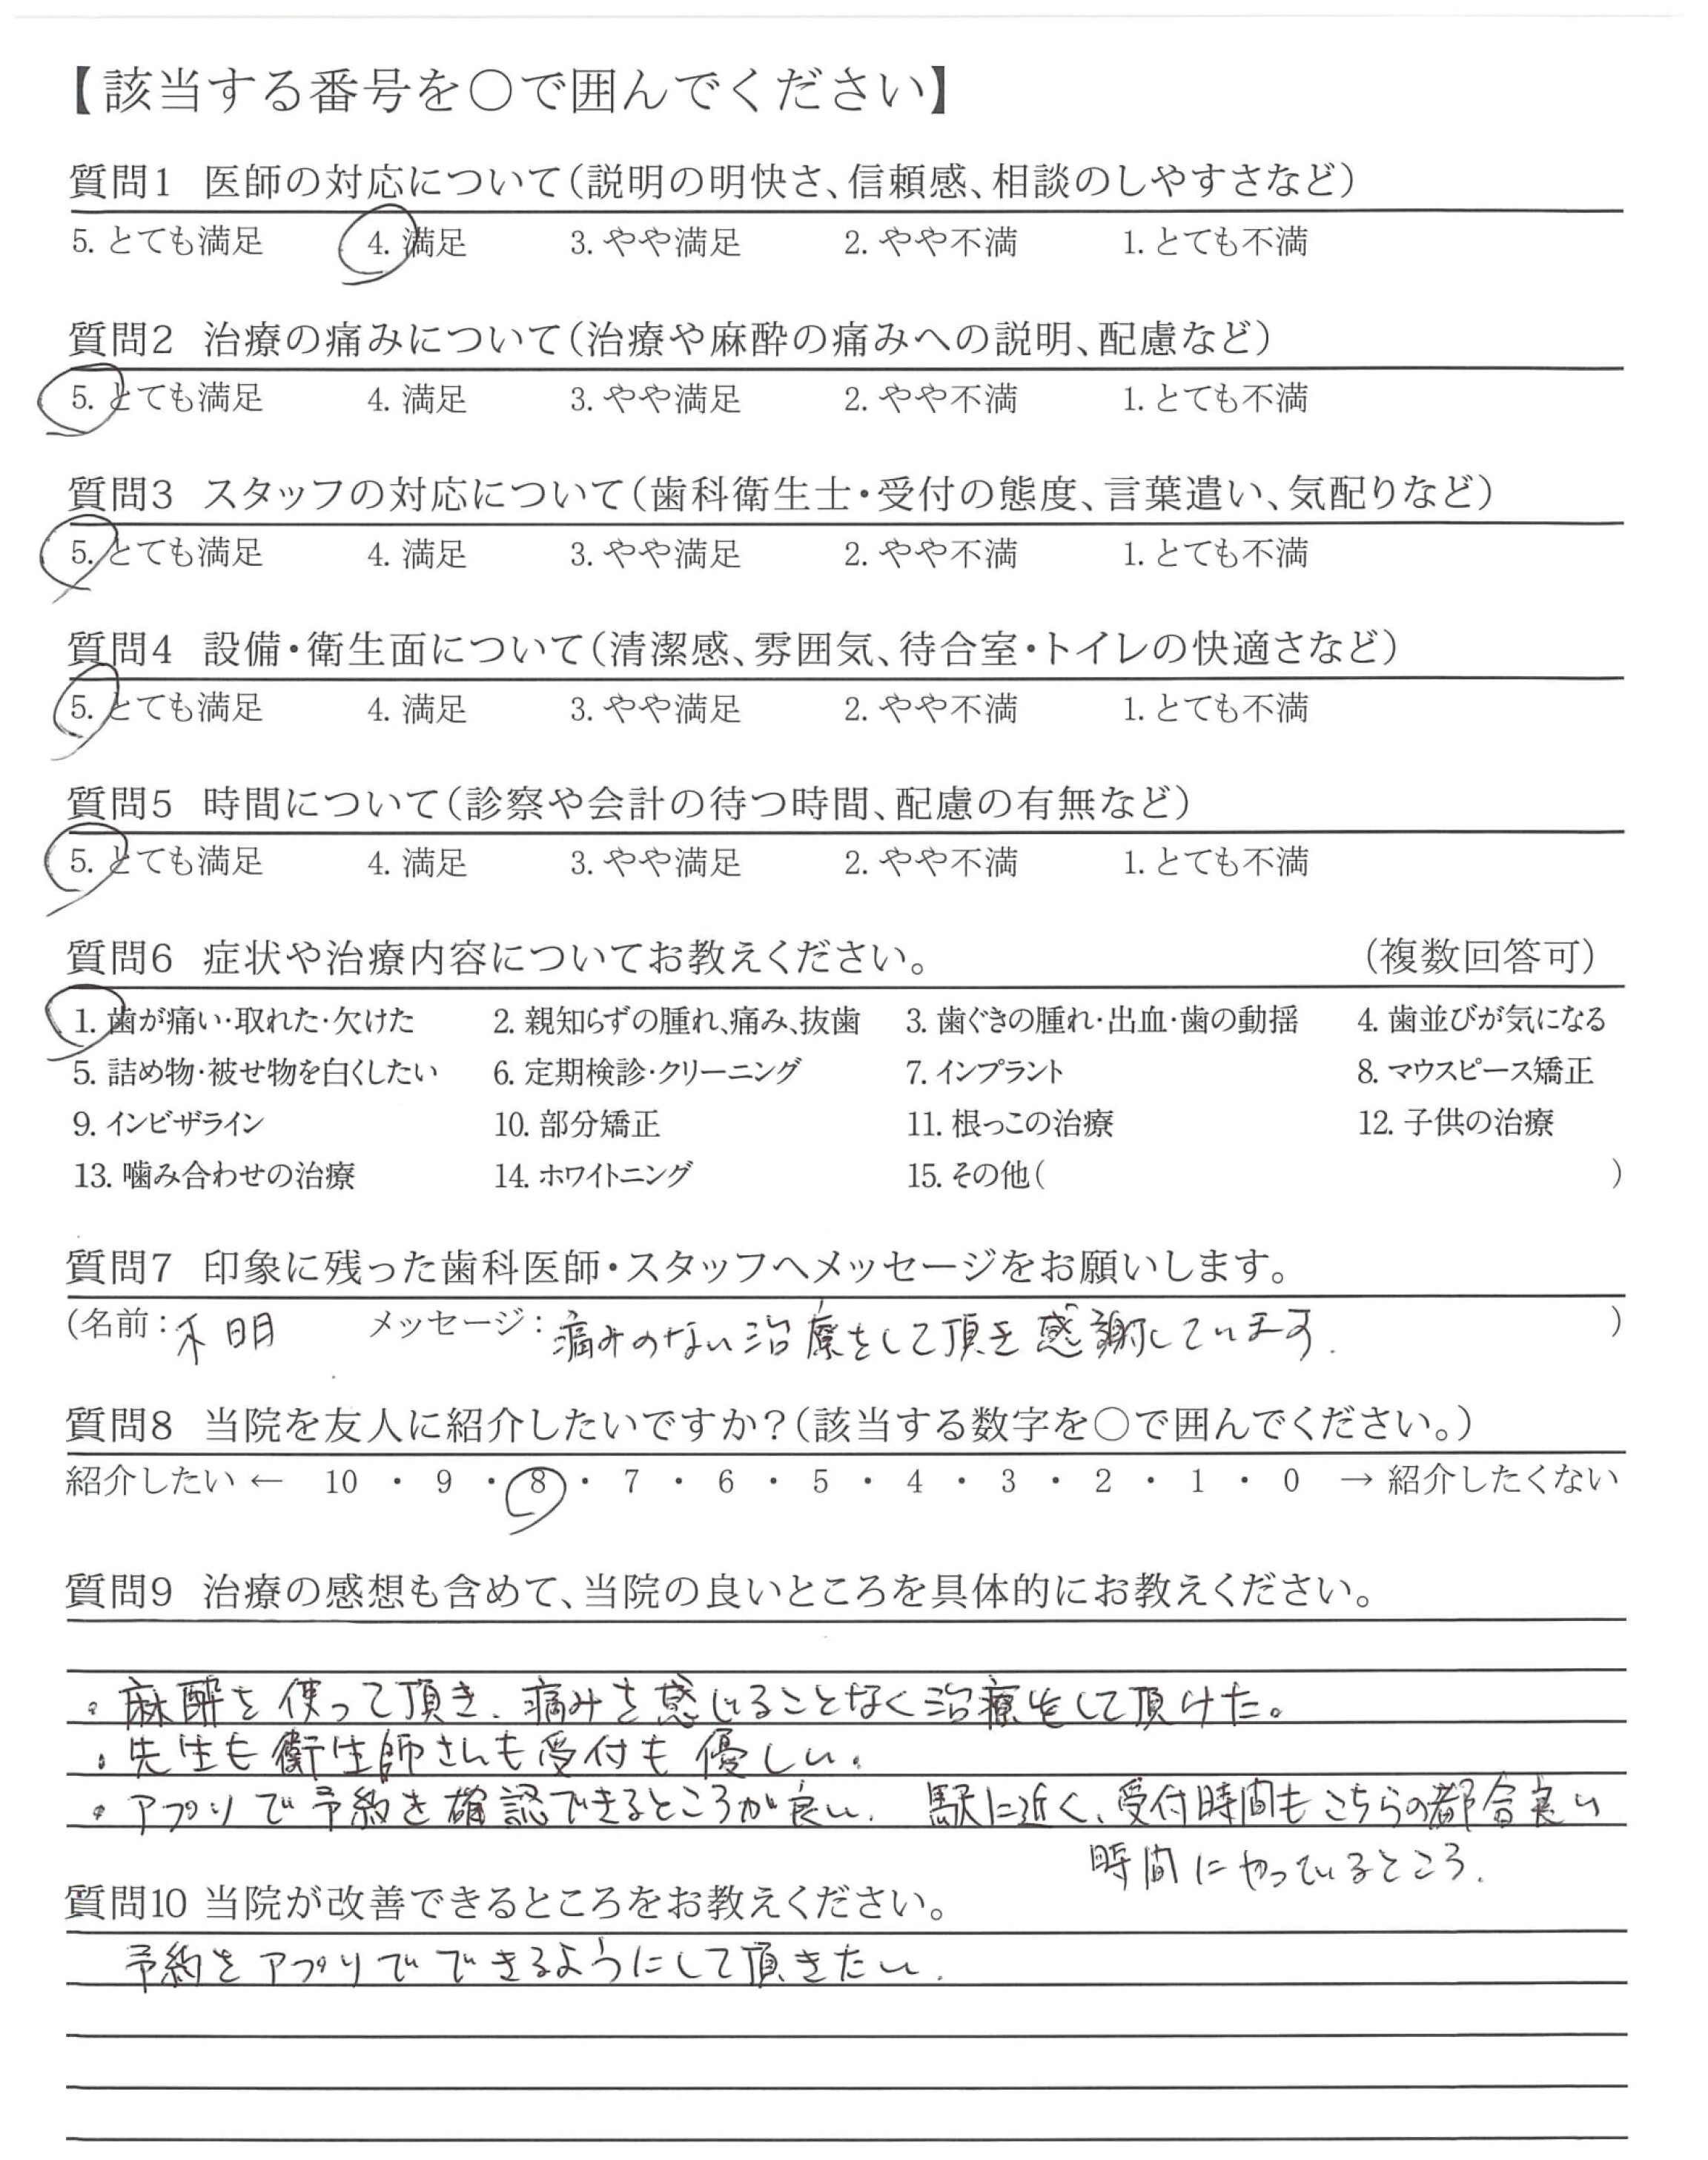 【該当する番号を○で囲んでください】
質問1 医師の対応について（説明の明快さ、信頼感、相談のしやすさなど）
5. とても満足 4. 満足 3. やや満足 2. やや不満 1. とても不満
質問2 治療の痛みについて（治療や麻酔の痛みへの説明、配慮など）
5. とても満足 4. 満足 3. やや満足 2. やや不満 1. とても不満
質問3 スタッフの対応について（歯科衛生士・受付の態度、言葉遣い、気配りなど）
5. とても満足 4. 満足 3. やや満足 2. やや不満 1. とても不満
質問4 設備・衛生面について（清潔感、雰囲気、待合室・トイレの快適さなど）
5. とても満足 4. 満足 3. やや満足 2. やや不満 1. とても不満
質問5 時間について（診察や会計の待つ時間、配慮の有無など）
5. とても満足 4. 満足 3. やや満足 2. やや不満 1. とても不満
質問6 症状や治療内容についてお教えください。 （複数回答可）
1. 歯が痛い・取れた・欠けた 2. 親知らずの腫れ、痛み、抜歯 3. 歯ぐきの腫れ・出血・歯の動揺 4. 歯並びが気になる
5. 詰め物・被せ物を白くしたい 6. 定期検診・クリーニング 7. インプラント 8. マウスピース矯正
9. インビザライン 10. 部分矯正 11. 根っこの治療 12. 子供の治療
13. 噛み合わせの治療 14. ホワイトニング 15. その他（ ）
質問7 印象に残った歯科医師・スタッフへメッセージをお願いします。
（名前：不明 メッセージ：痛みのない治療をして頂き感謝しています. ）
質問8 当院を友人に紹介したいですか？（該当する数字を○で囲んでください。）
紹介したい ← 10 ・ 9 ・ 8 ・ 7 ・ 6 ・ 5 ・ 4 ・ 3 ・ 2 ・ 1 ・ 0 → 紹介したくない
質問9 治療の感想も含めて、当院の良いところを具体的にお教えください。
・麻酔を使って頂き、痛みを感じることなく治療をして頂けた。
・先生も衛生師さんも受付も優しい。
・アプリで予約を確認できるところが良い. 駅に近く、受付時間もこちらの都合良い
時間にやっているところ.
質問10 当院が改善できるところをお教えください。
予約をアプリでできるようにして頂きたい.